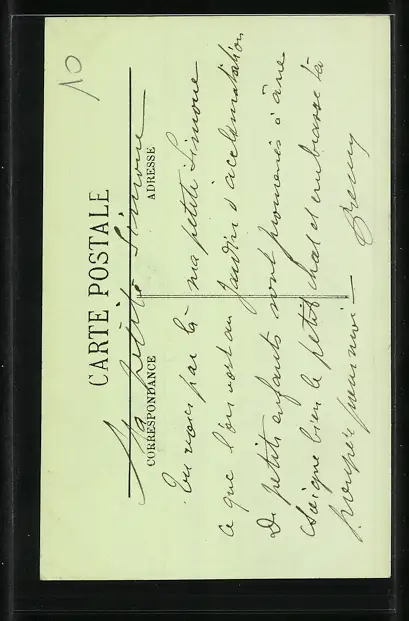 10
CARTE POSTALE
CORRESPONDANCE
ADRESSE
Ma petite Simone
Tu vois par là ma petite Simone
ce que l'on voit au Jardin d'acclimatation
De petits enfants sont promenés à âne
Soigne bien le petit chat et embrasse ta
poupée pour moi —